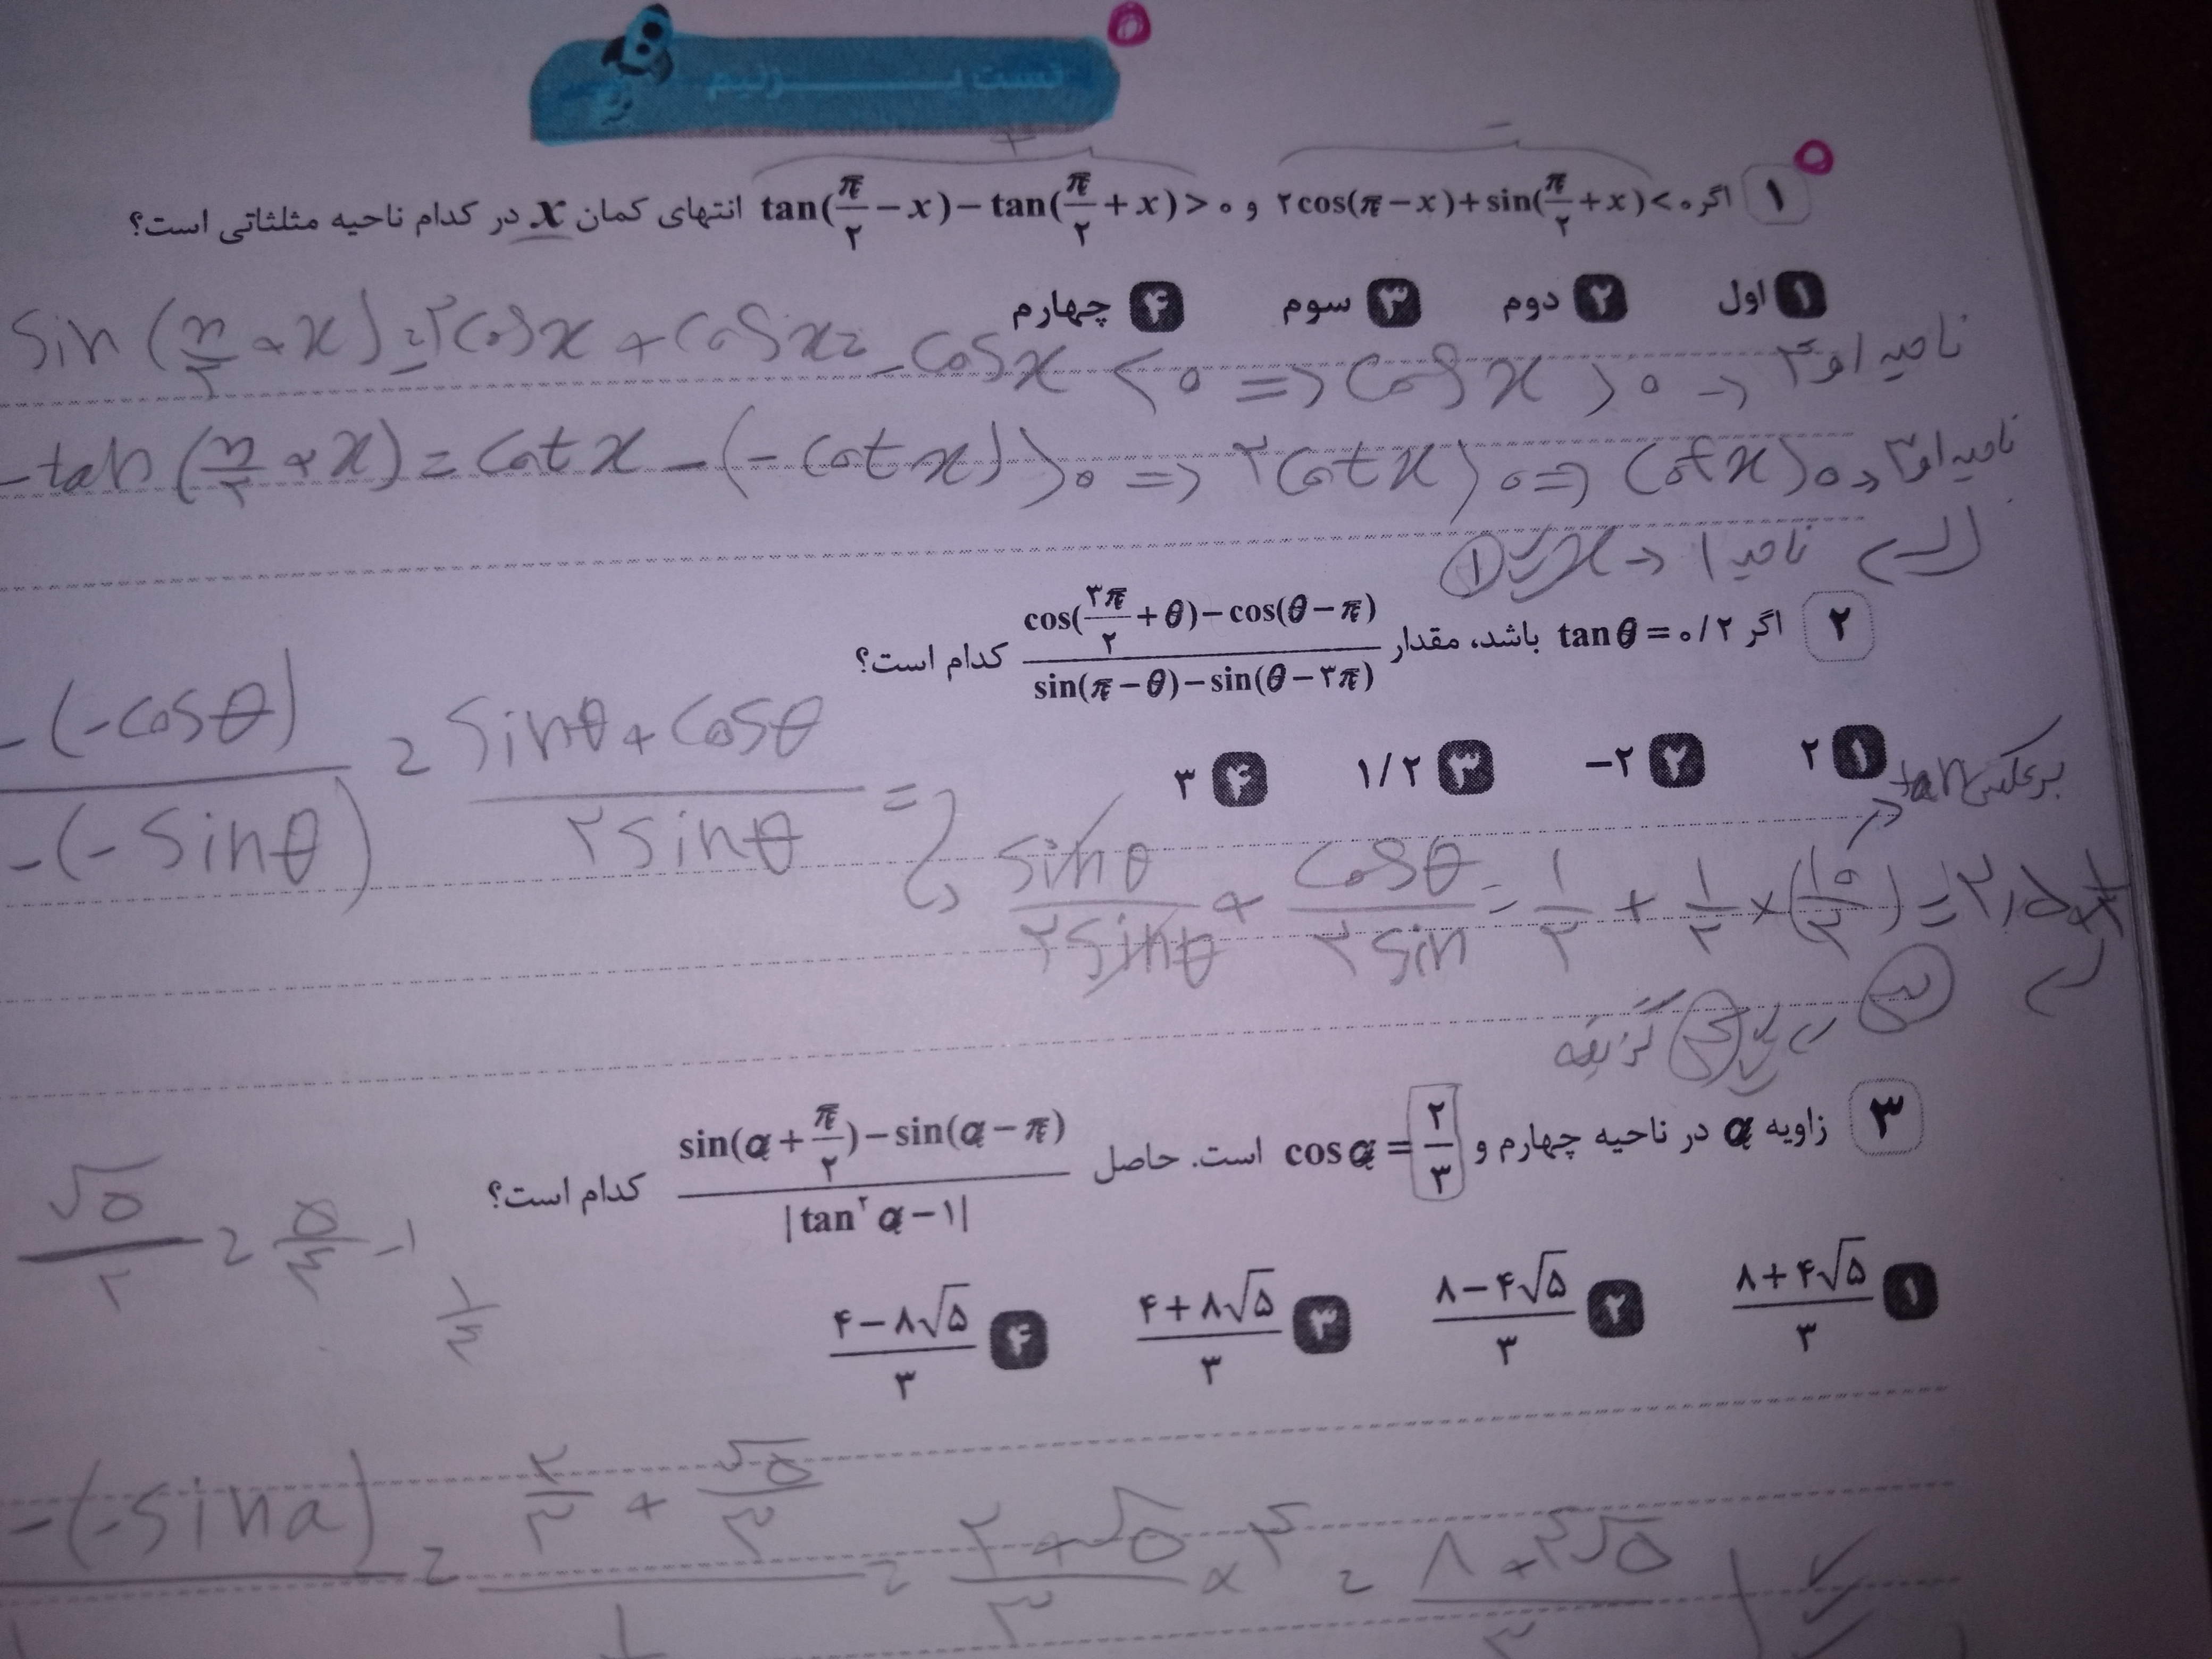 تست بزنیم
۱ اگر ۲cos(π−x)+sin(π/۲+x)<۰ و tan(π/۲−x)−tan(π/۲+x)>۰ انتهای کمان x در کدام ناحیه مثلثاتی است؟
۱ اول ۲ دوم ۳ سوم ۴ چهارم
sin(π/۲+x)=-۲cosx+cosx=-cosx<۰ => cosx>۰ → ناحیه ۱ و ۴
-tan(π/۲+x)=cotx-(-cotx)>۰ => ۲cotx>۰ => cotx>۰ → ناحیه ۱ و ۳
ناحیه ۱ ← x ۱
۲ اگر tanθ=۰/۲ باشد، مقدار (cos(۳π/۲+θ)−cos(θ−π))/(sin(π−θ)−sin(θ−۳π)) کدام است؟
-(-cosθ)/-(-sinθ) = (sinθ+cosθ)/۲sinθ =
۱ ۲ ۲ −۲ ۳ ۱/۲ ۴ ۳
برعکس tan
sinθ/۲sinθ + cosθ/۲sin = ۱/۲ + ۱/۲×(۱۰/۲) =
۳ گزینه
۳ زاویه α در ناحیه چهارم و cosα=۲/۳ است. حاصل (sin(α+π/۲)−sin(α−π))/|tan²α−۱| کدام است؟
√۵/۲ = ۵/۴ -۱
۱/۴
۱ (۸+۴√۵)/۳ ۲ (۸−۴√۵)/۳ ۳ (۴+۸√۵)/۳ ۴ (۴−۸√۵)/۳
-(-sina) = ۲/۳ + √۵/۳ = (۲+√۵)/۳ × ۴ = (۸+۴√۵)/۳